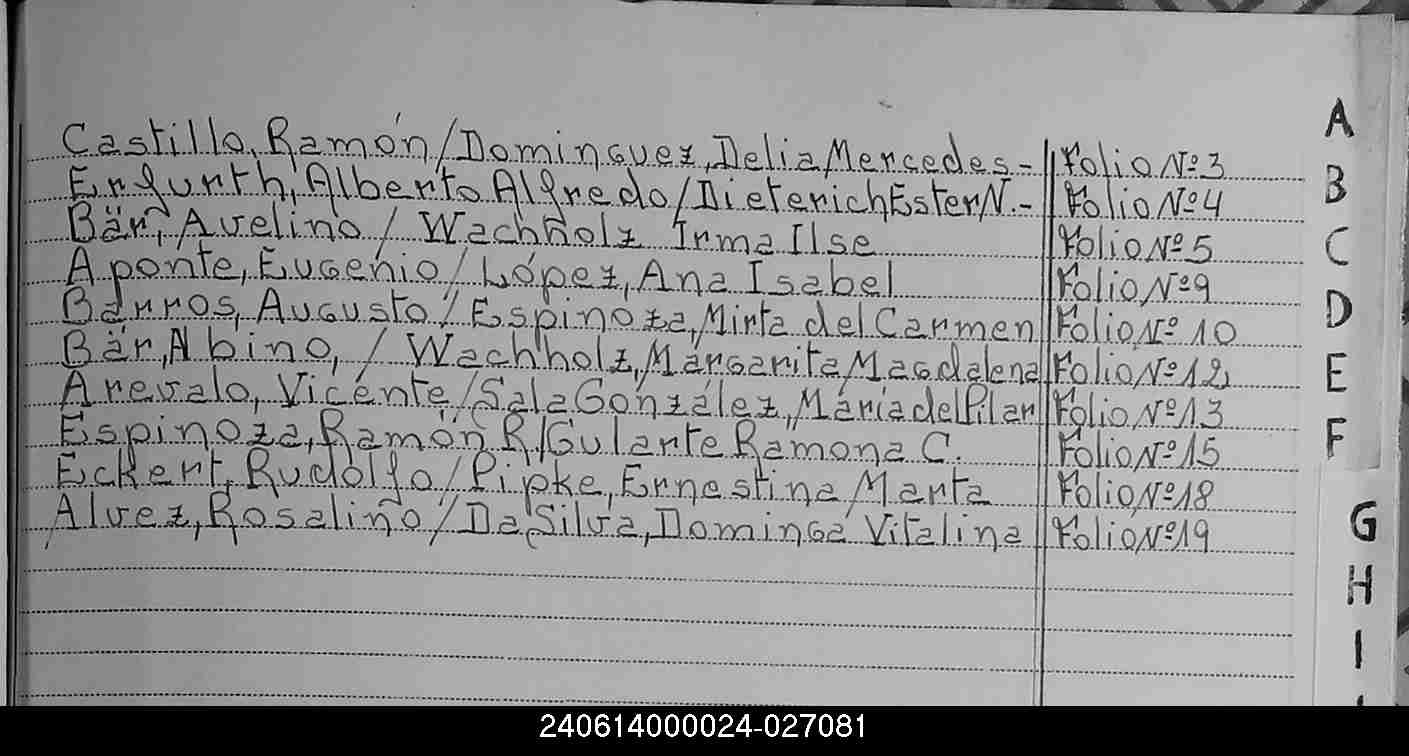 Castillo, Ramón/Dominguez, Delia Mercedes.- Folio Nº 3
Erfurth, Alberto Alfredo/Dieterich Ester N.- Folio Nº 4
Bär, Avelino / Wachholz Irma Ilse Folio Nº 5
Aponte, Eugenio/López, Ana Isabel Folio Nº 9
Barros, Augusto/Espinoza, Mirta del Carmen Folio Nº 10
Bär, Albino, / Wachholz, Margarita Magdalena Folio Nº 12
Arevalo, Vicente/Sala González, María del Pilar Folio Nº 13
Espinoza, Ramón R/Gularte Ramona C. Folio Nº 15
Eckert, Rudolfo/Pipke, Ernestina Marta Folio Nº 18
Alvez, Rosalino/Da Silva, Dominga Vitalina Folio Nº 19
A
B
C
D
E
F
G
H
I
240614000024-027081